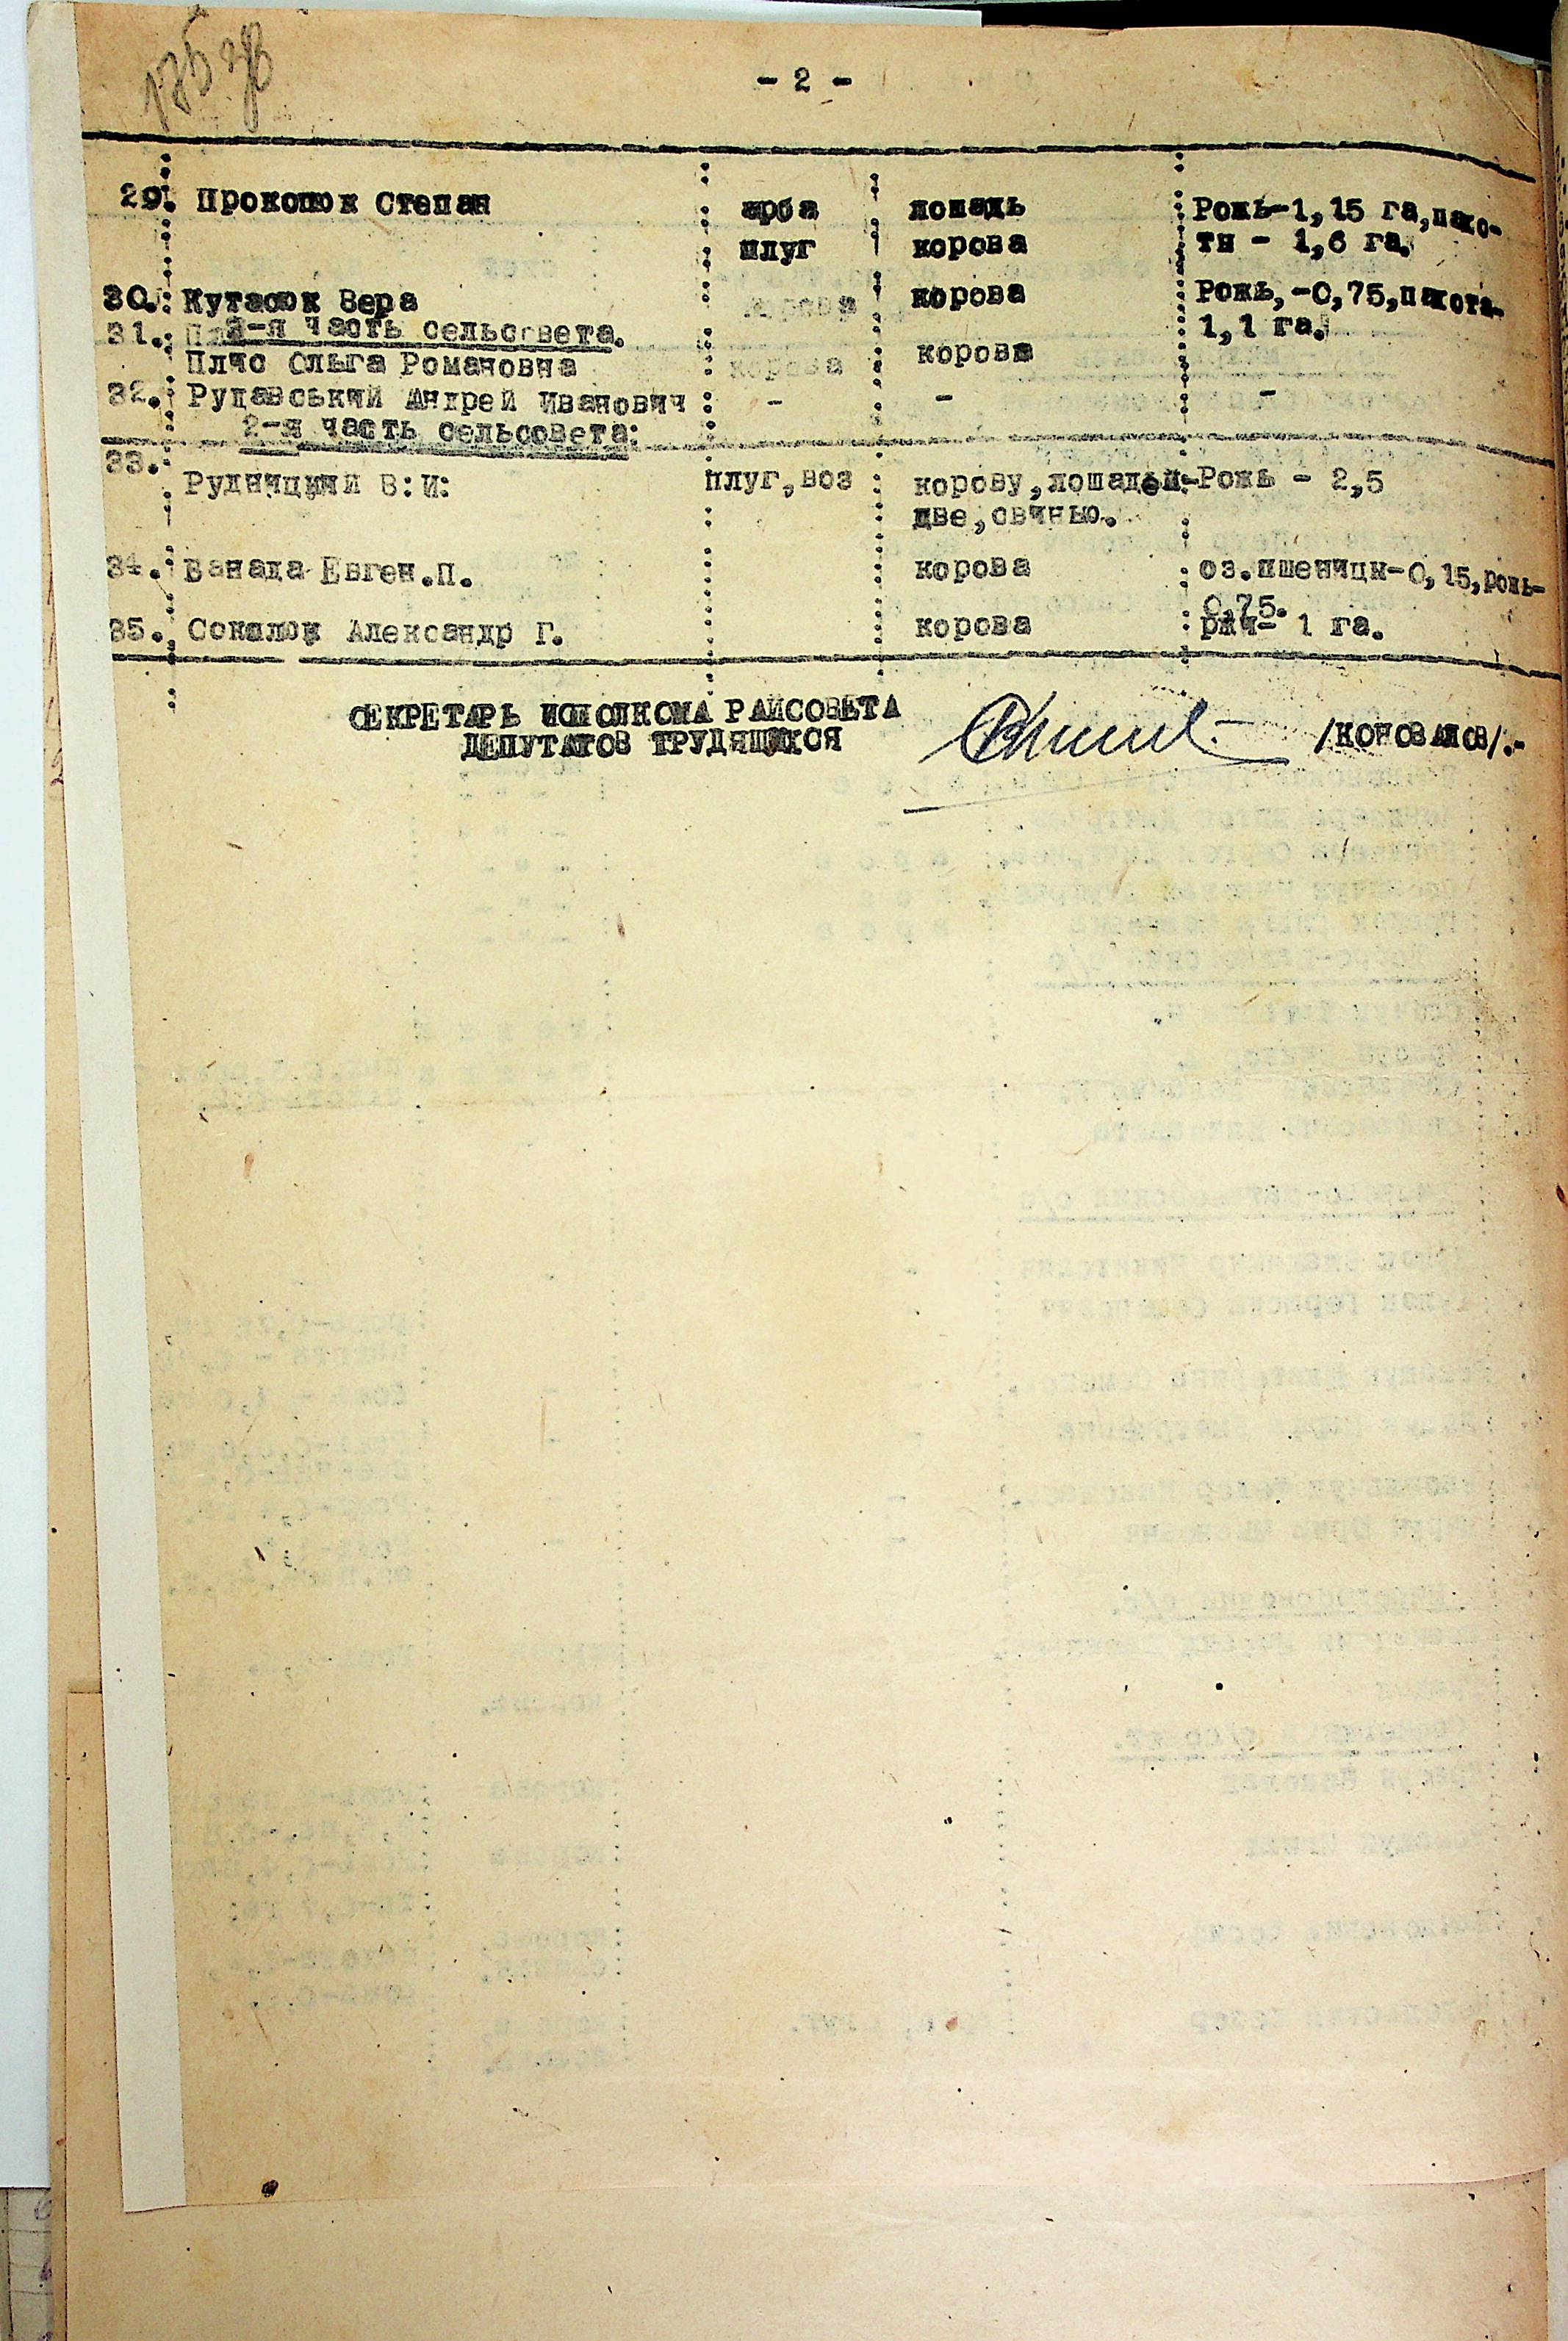 175 зв
- 2 -
29. Прокопюк Степан арба лошадь Рожь-1,15 га,пахо-
плуг корова ти - 1,6 га.
30. Кутасюк Вера корова корова Рожь,-0,75,пахота-
31. 3-я часть сельсовета. 1,1 га.
Плчо Ольга Романовна корова корова
32. Рудавський Андрей Иванович - - -
2-я часть сельсовета:
33.
Рудницкий В:И: плуг,воз корову,лошадей-Рожь - 2,5
две,свинью.
34. Ванада Евген.П. корова оз.пшеницы-0,15,рожь-
0,75.
35. Соколюк Александр Г. корова ржи- 1 га.
СЕКРЕТАРЬ ИСПОЛКОМА РАЙСОВЕТА
ДЕПУТАТОВ ТРУДЯЩИХСЯ /КОНОВАЛОВ/.-